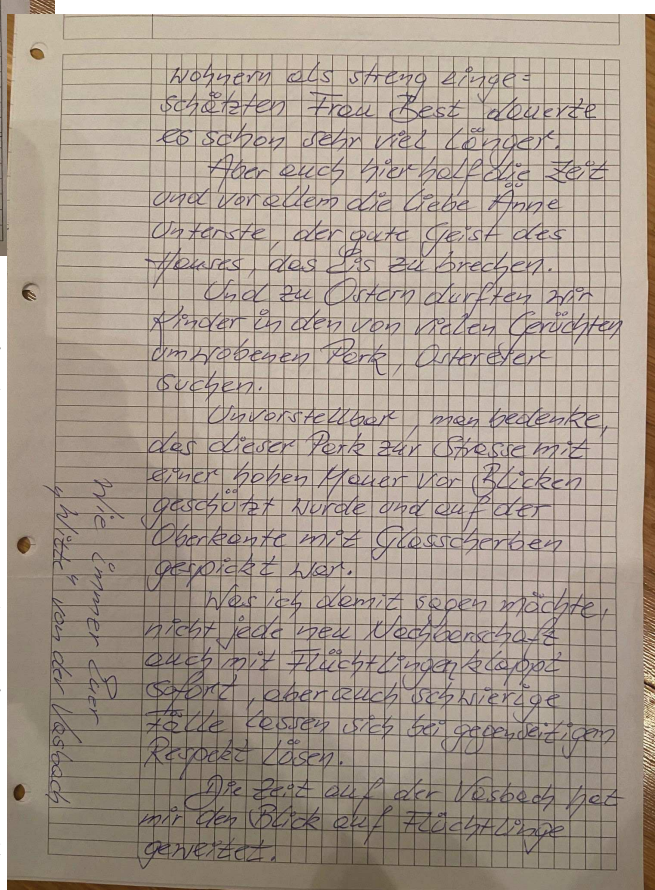 wohnern als streng einge=
schätzten Frau Best dauerte
es schon sehr viel länger.
Aber auch hier half die Zeit
und vor allem die liebe Änne
Unterste, der gute Geist des
Hauses, das Eis zu brechen.
Und zu Ostern durften wir
Kinder in den von vielen Gerüchten
umwobenen Park, Ostereier
suchen.
Unvorstellbar, man bedenke,
das dieser Park zur Strasse mit
einer hohen Mauer vor Blicken
geschützt wurde und auf der
Oberkante mit Glasscherben
gespickt war.
Was ich damit sagen möchte,
nicht jede neu Nachbarschaft
auch mit Flüchtlingen klappt
sofort, aber auch schwierige
Fälle lassen sich bei gegenseitigem
Respekt lösen.
Die Zeit auf der Vosbach hat
mir den Blick auf Flüchtlinge
geweitet.
Wie immer Euer
von der Vosbach